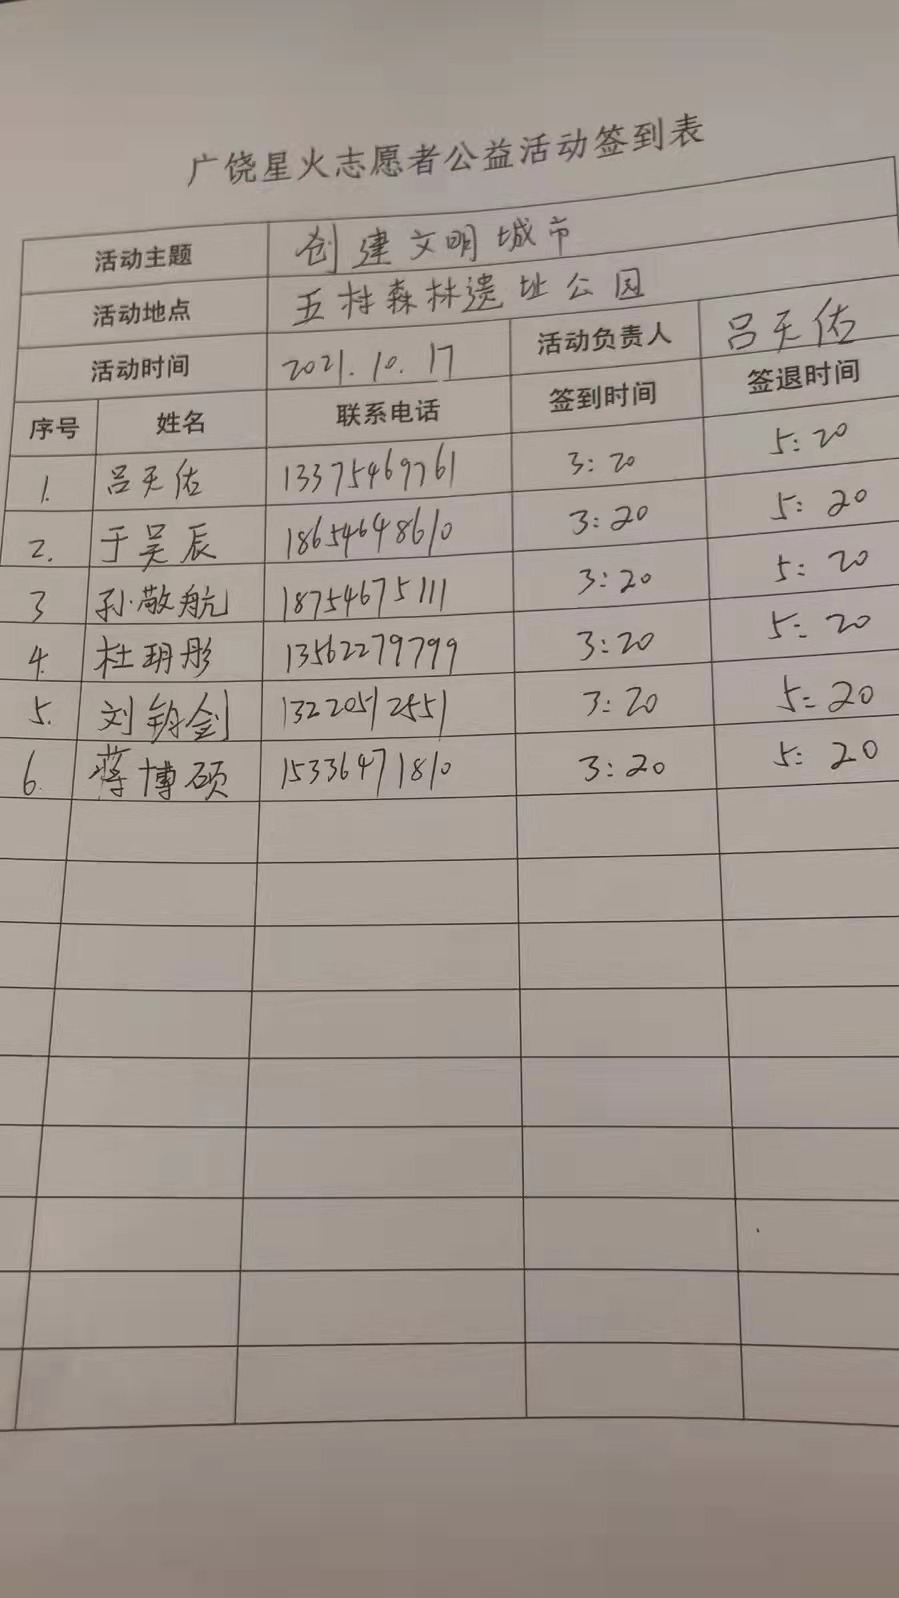 广饶星火志愿者公益活动签到表
活动主题 创建文明城市
活动地点 五村森林遗址公园
活动时间 2021.10.17 活动负责人 吕天佑
序号 姓名 联系电话 签到时间 签退时间
1. 吕天佑 13375469761 3:20 5:20
2. 于吴辰 18654648610 3:20 5:20
3 孙敬航 18754675111 3:20 5:20
4. 杜玥彤 13562279799 3:20 5:20
5. 刘钧剑 13220512551 3:20 5:20
6. 蒋博硕 15336471810 3:20 5:20